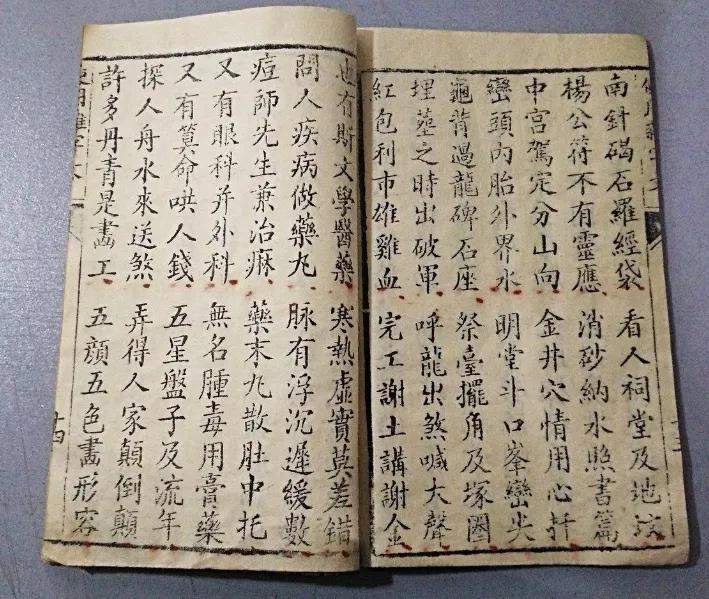 南針碣石羅經袋 看人祠堂及地坟
楊公符不有靈應 消砂納水照書篇
中宮駕定分山向 金井穴情用心扦
巒頭內胎外界水 明堂斗口峯巒尖
龜背過龍碑石座 祭臺擺角及塚圈
埋墓之時出破軍 呼龍出煞喊大聲
紅包利市雄雞血 完工謝土講謝金
也有斯文學醫藥 寒熱虛實莫差錯
問人疾病做藥丸 脉有浮沉遲緩數
痘師先生兼治痳 藥末丸散肚中托
又有眼科并外科 無名腫毒用膏藥
又有算命哄人錢 五星盤子及流年
探人舟水來送煞 弄得人家顛倒顛
許多丹青是畵工 五顏五色畵形容
十四